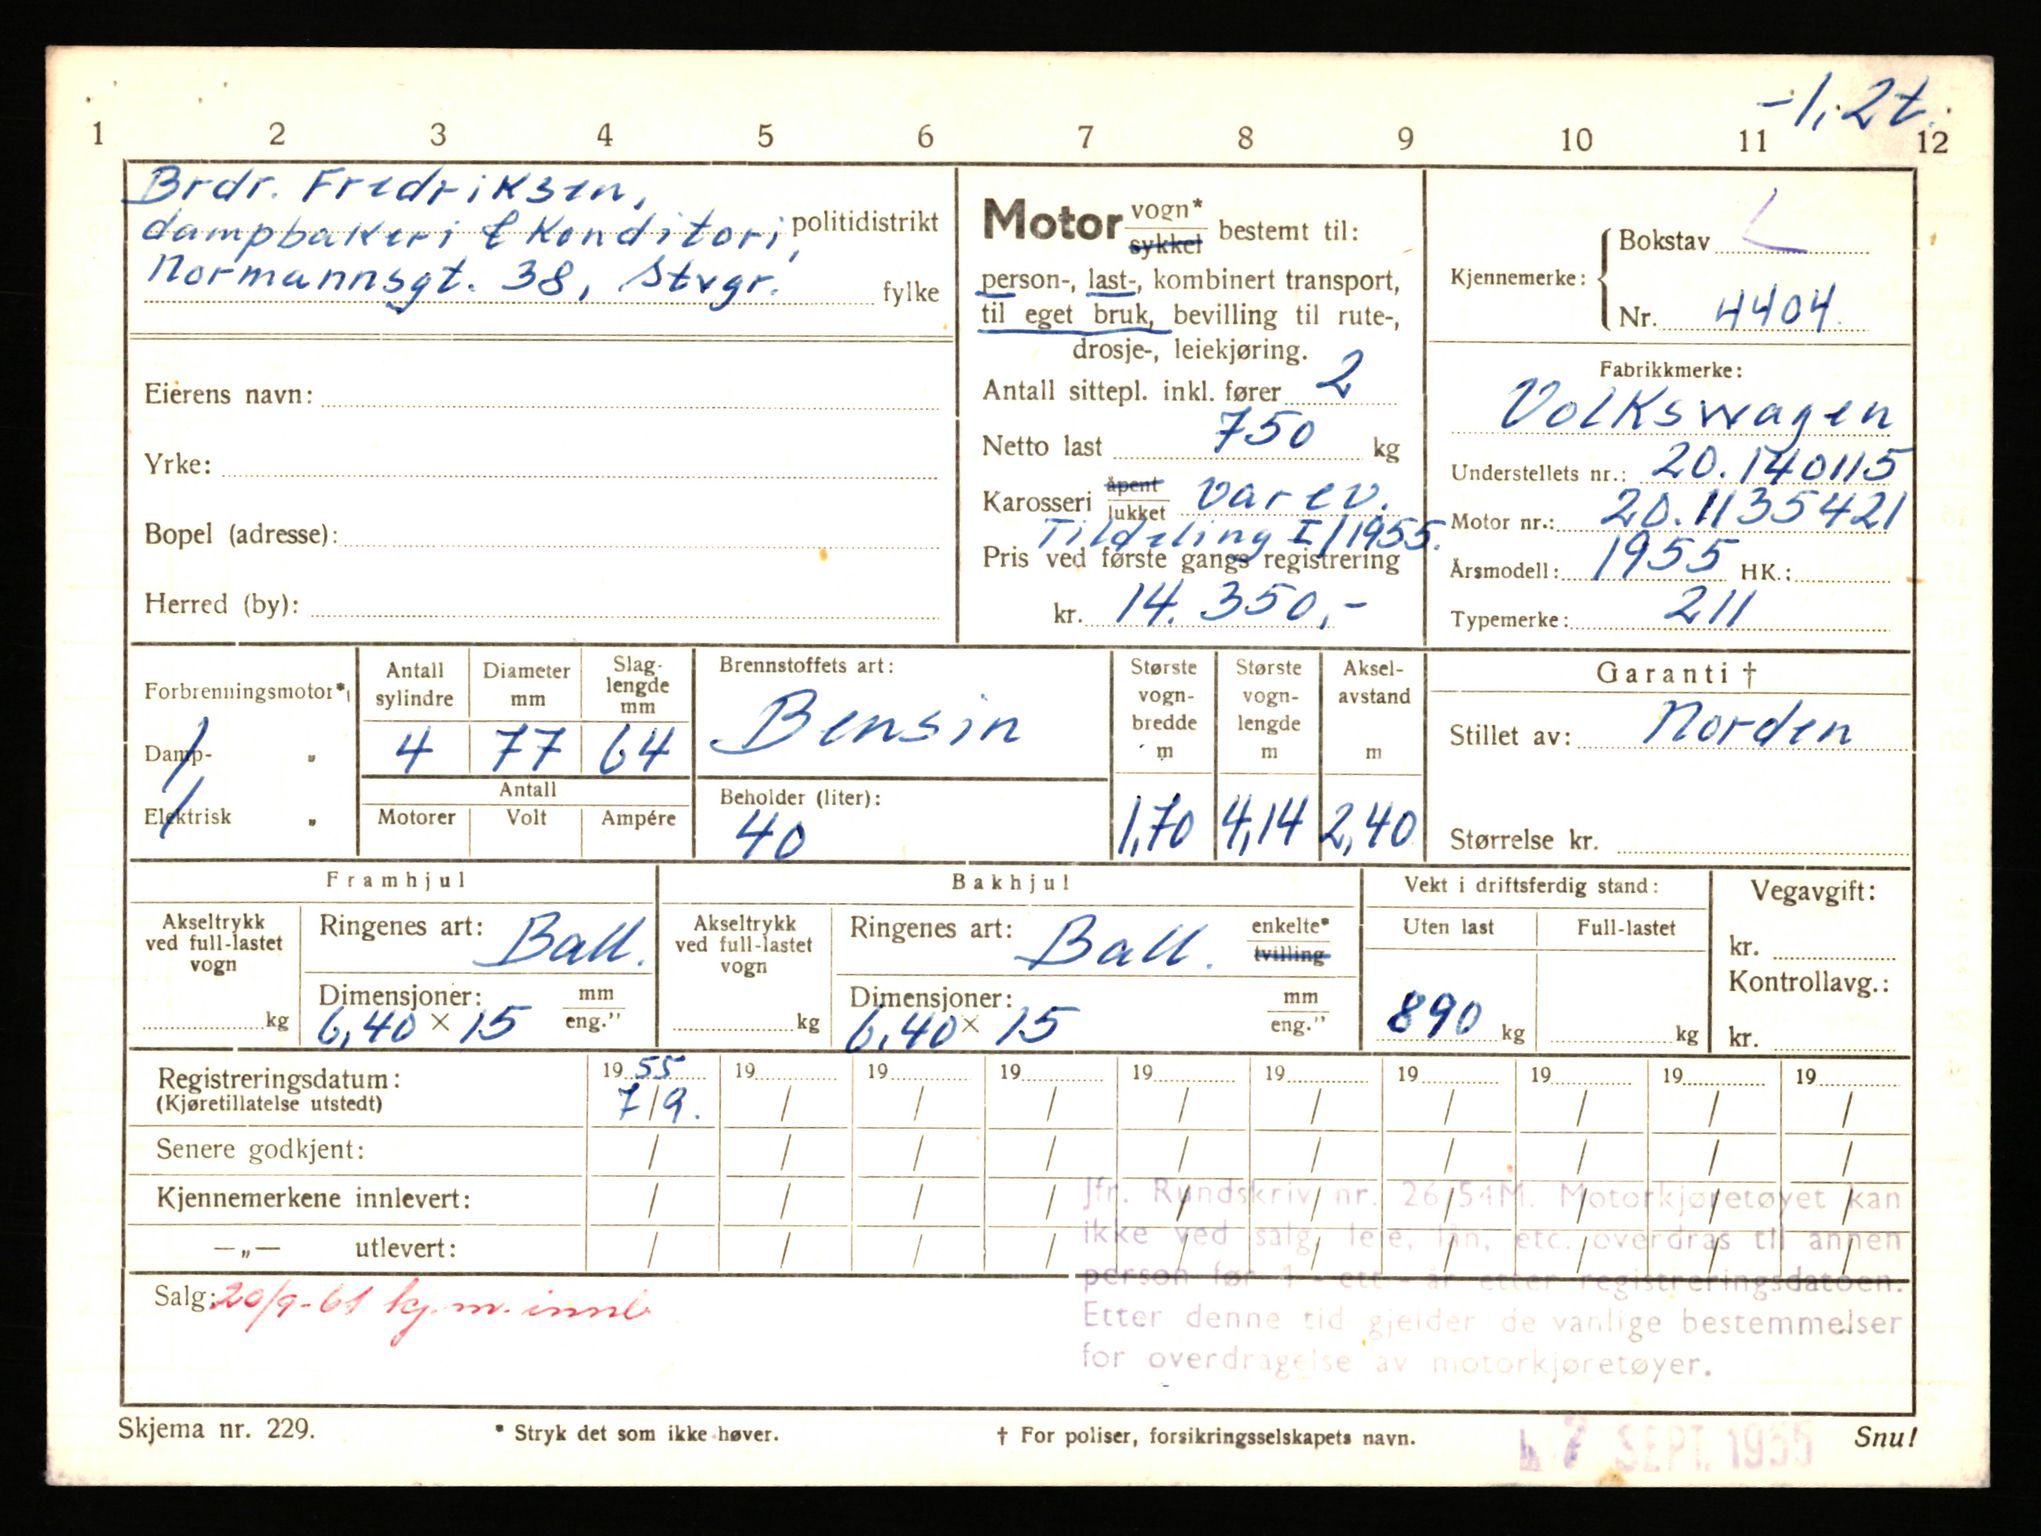 -1,2t.
1 2 3 4 5 6 7 8 9 10 11 12
Brdr. Fredriksen,
dampbakeri & Konditori, politidistrikt
Normannsgt. 38, Stvgr. fylke
Eierens navn:
Yrke:
Bopel (adresse):
Herred (by):
Motor vogn* sykkel bestemt til:
person-, last-, kombinert transport,
til eget bruk, bevilling til rute-,
drosje-, leiekjøring.
Antall sittepl. inkl. fører 2
Netto last 750 kg
Karosseri åpent lukket varev.
Tildeling I/1955.
Pris ved første gangs registrering
kr. 14.350,-
Kjennemerke: Bokstav L
Nr. 4404
Fabrikkmerke:
Volkswagen
Understellets nr.: 20.140115
Motor nr.: 20.1135421
Årsmodell: 1955 HK.:
Typemerke: 211
Forbrenningsmotor*)
Damp- "
Elektrisk "
Antall sylindre 4
Diameter mm 77
Slaglengde mm 64
Antall
Motorer Volt Ampére
Brennstoffets art:
Bensin
Beholder (liter):
40
Største vognbredde m 1,70
Største vognlengde m 4,14
Akselavstand m 2,40
Garanti †
Stillet av: Norden
Størrelse kr.
Framhjul
Akseltrykk
ved full-lastet
vogn
kg
Ringenes art: Ball.
Dimensjoner: mm eng."
6,40 × 15
Bakhjul
Akseltrykk
ved full-lastet
vogn
kg
Ringenes art: Ball. enkelte* tvilling
Dimensjoner: mm eng."
6,40 × 15
Vekt i driftsferdig stand:
Uten last Full-lastet
890 kg kg
Vegavgift:
kr.
Kontrollavg.:
kr.
Registreringsdatum: 1955 19 19 19 19 19 19 19 19 19
(Kjøretillatelse utstedt) 7/9. / / / / / / / / /
Senere godkjent: / / / / / / / / / /
Kjennemerkene innlevert: / / / / / / / / / /
—„— utlevert: / / / / / / / / / /
Jfr. Rundskriv nr. 26/54M. Motorkjøretøyet kan
ikke ved salg, leie, lån, etc. overdras til annen
person før 1 - ett - år etter registreringsdatoen.
Etter denne tid gjelder de vanlige bestemmelser
for overdragelse av motorkjøretøyer.
Salg: 20/9-61 kj.m. innl
Skjema nr. 229.
* Stryk det som ikke høver.
† For poliser, forsikringsselskapets navn.
7 SEPT. 1955
Snu!